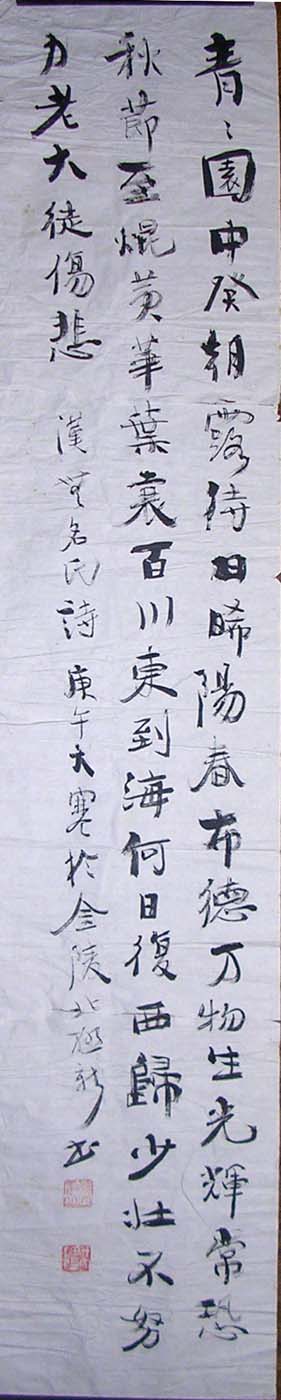 青〻園中癸朝露待日晞陽春布德万物生光輝常恐
秋節至焜黄華葉衰百川東到海何日復西歸少壯不努
力老大徒傷悲 漢無名氏詩 庚午大寒於金陵北極 书